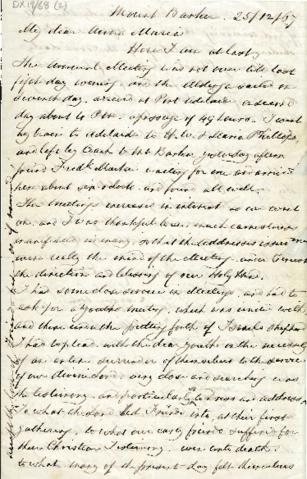 DX19/68 (2)
Mount Barker 25/12/67
My dear Anna Maria
Here I am at last,
The Annual Meeting was not over till last
first day evening, and the Aldinga sailed on
seventh day, arrived at Port Adelaide second
day about 4 P.M. a passage of 49 hours. I went
by train to Adelaide to H. W. & Maria Phillips
and left by Coach to Mt Barker yesterday afternoon
found Fredk Mackie waiting for me and arrived
here about six o'clock and found all well.
The Meetings increased in interest as we went
on, and I was thankful to see much earnestness
manifested in many, so that the addresses issued
were really the mind of the Meeting, under
the direction and blessing of our Holy Head.
I had some close service in Meetings, and had to
ask for a youths meeting, which was united with
and there under the putting forth of Israels shepherd
I had to plead with the dear youth on the necessity
of an entire surrender of themselves to the service
of our divine Lord. very close and searching was
the testimony, and particularly was addressed
to what the Lord led Friends into, at their first
gathering, to what our early friends suffered for
their Christian Testimony, even unto death.
to what many of the present day felt themselves